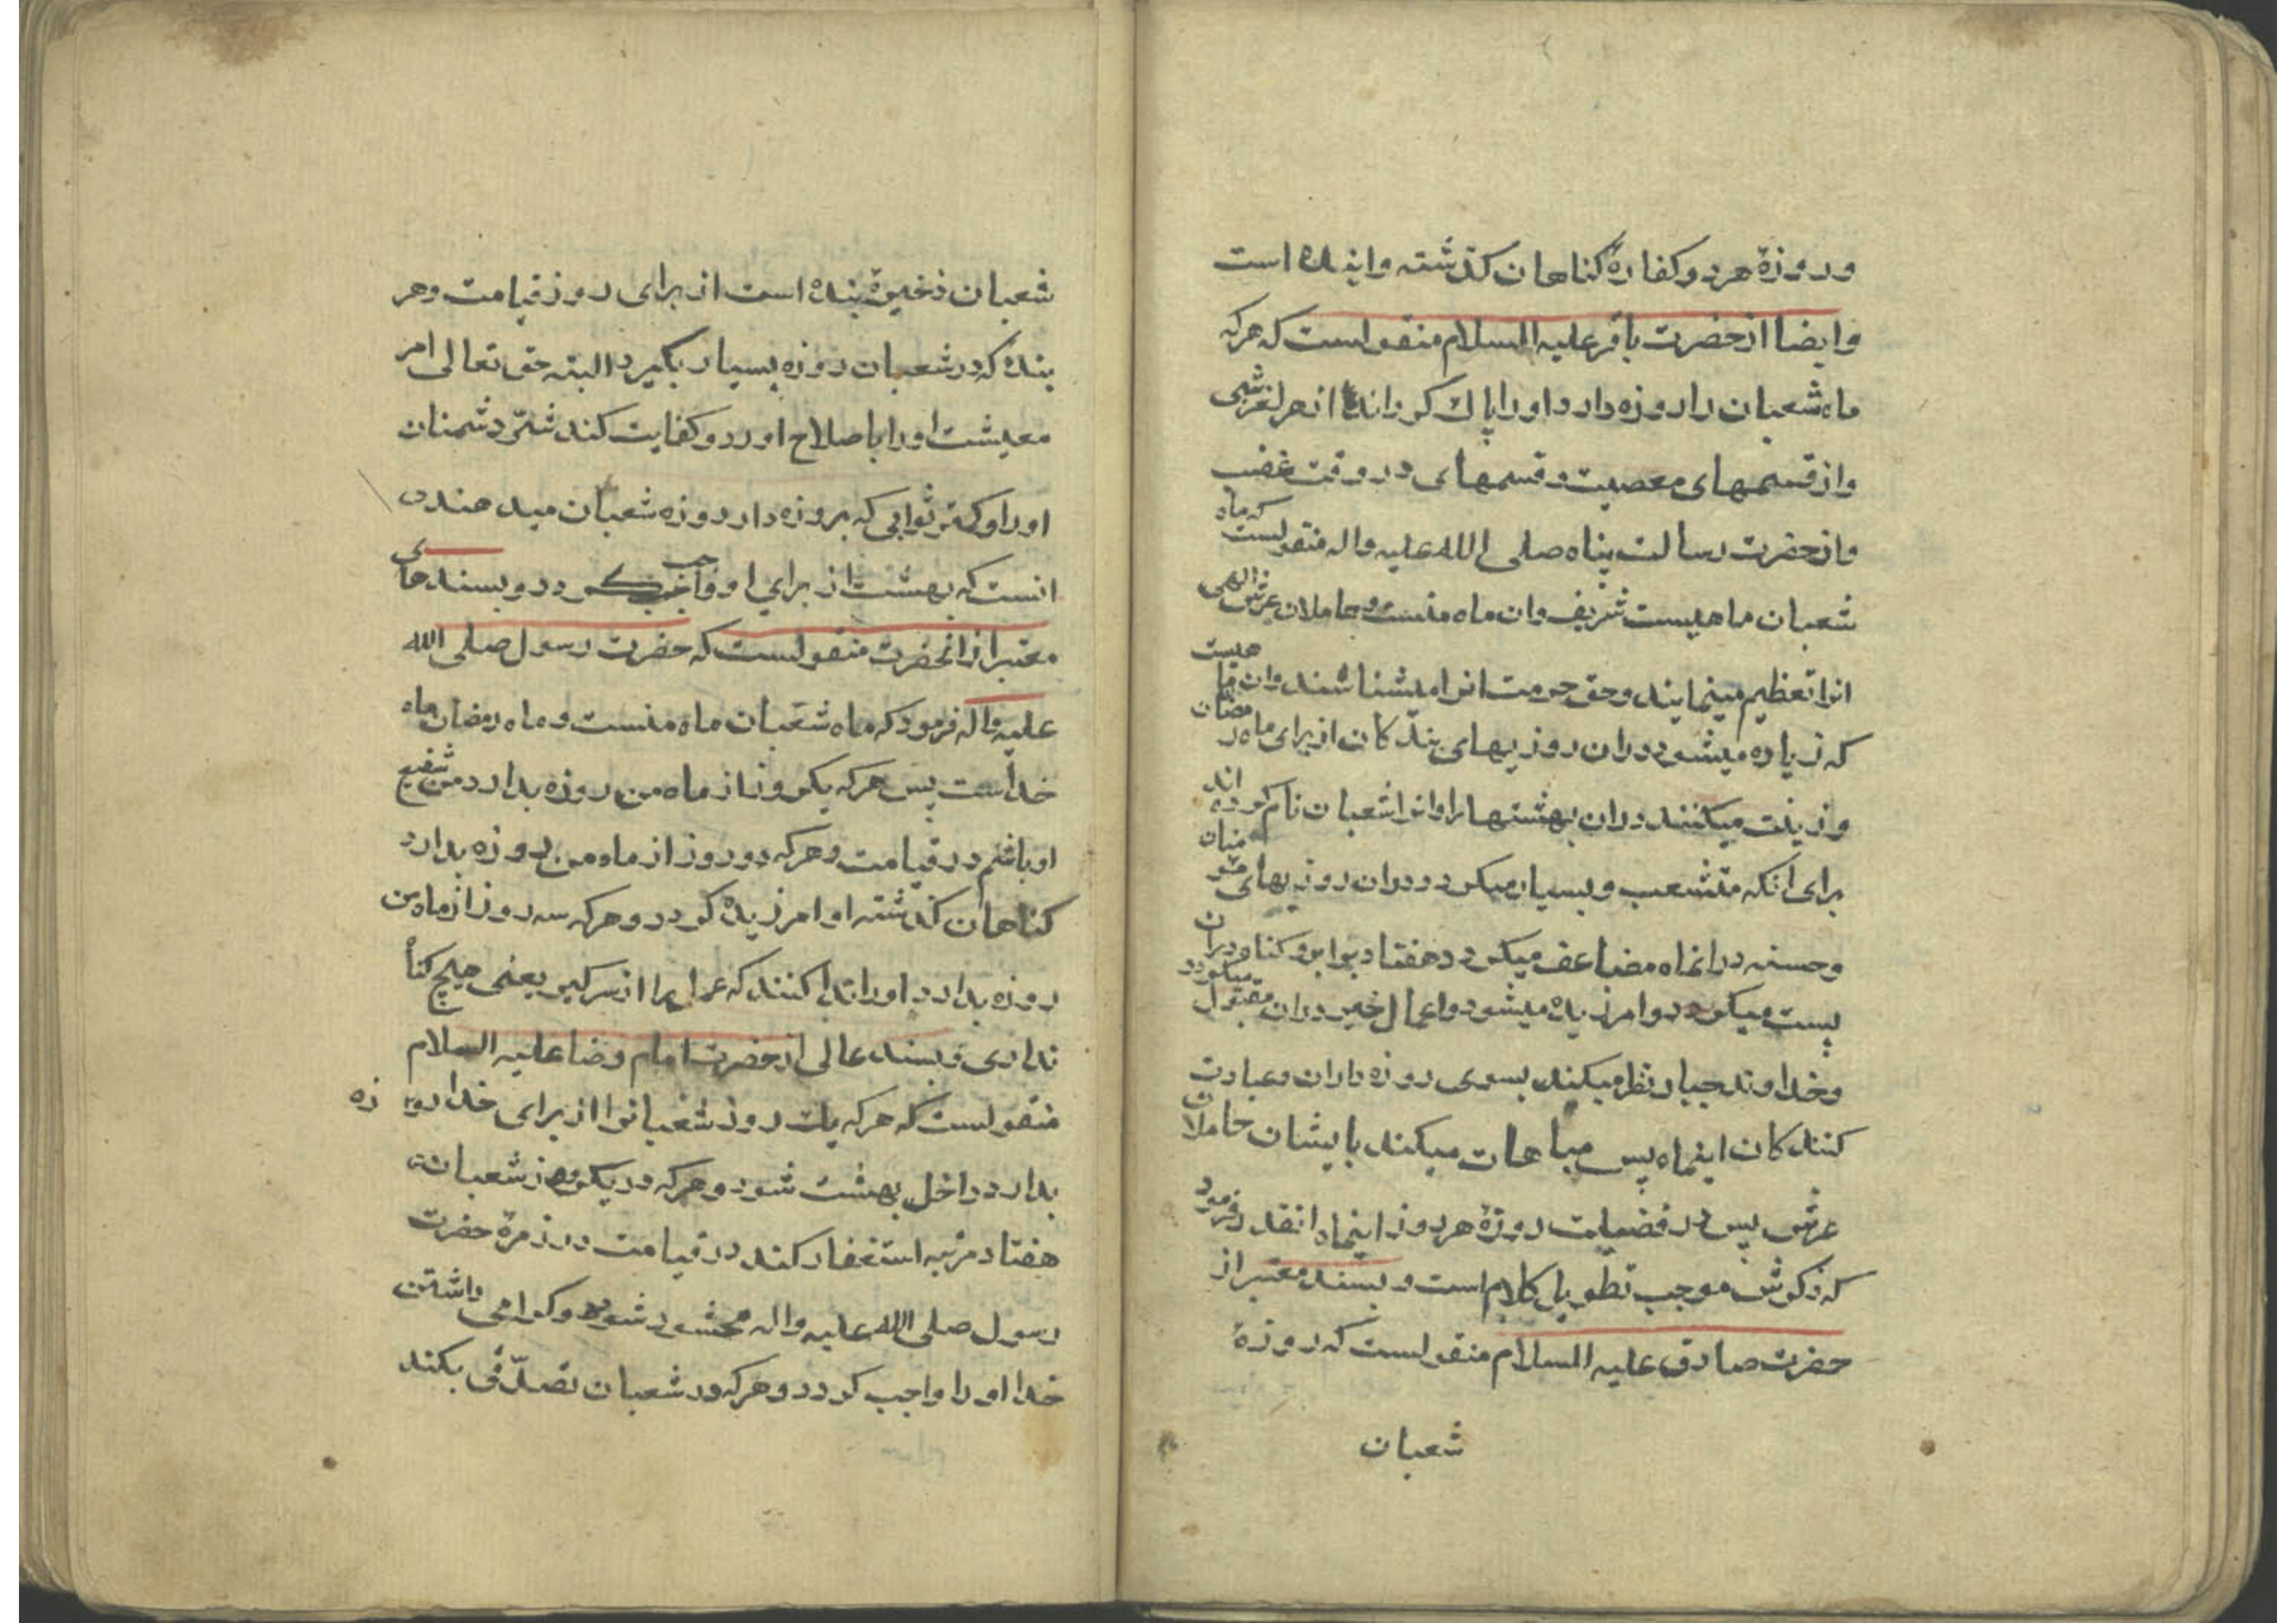 و روزهٔ هر دو کفارهٔ کناهان کذشته و اینده است
و ایضا از حضرت باقر علیه السلام منقولست که هرکه
ماه شعبان را روزه دارد او را پاک کرداند از هر لغزشی
و از قسمهای معصیت و قسمهای در وقت غضب
و از حضرت رسالت پناه صلی الله علیه واله منقولست که ماه
شعبان ماهیست شریف و ان ماه منست و حاملان عرش الهی
انرا تعظیم مینمایند و حق حرمت انرا میشناسند و ان ماهیست
که زیاده میشود دران روزیهای بندکان از برای ماه رمضان
و زینت میکنند دران بهشتها را و انرا شعبان نام کرده اند
برای انکه متشعب و بسیار میکردد دران روزیهای مؤمنان
و حسنه در انماه مضاعف میکردد هفتاد برابر و کناه دران
پست میکردد و امرزیده میشود و اعمال خیر دران مقبول میکردد
و خداوند جبار نظر میکند بسوی روزه داران و عبادت
کنندکان اینماه پس مباهات میکند بایشان حاملان
عرش پس در فضیلت روزهٔ هر روز اینماه انقدر فرمود
که ذکرش موجب تطویل کلام است و بسند معتبر از
حضرت صادق علیه السلام منقولست که روزهٔ
شعبان
شعبان ذخیرهٔ بنده است از برای روز قیامت و هر
بندهٔ که در شعبان روزه بسیار بکیرد البته حق تعالی امر
معیشت او را باصلاح اورد و کفایت کند شرّ دشمنان
او را و کمتر ثوابی که بروزه دار روزه شعبان میدهند
انست که بهشت از برای او واجب کردد و بسندهای
معتبر از انحضرت منقولست که حضرت رسول صلی الله
علیه واله فرمود که ماه شعبان ماه منست و ماه رمضان ماه
خداست پس هرکه یکروز از ماه من روزه بدارد من شفیع
او باشم در قیامت و هرکه دو روز از ماه من روزه بدارد
کناهان کذشته او امرزیده کردد و هرکه سه روز از ماه من
روزه بدارد او را ندا کنند که عمل را از سر کیر یعنی هیچ کناه
نداری و بسند عالی از حضرت امام رضا علیه السلام
منقولست که هرکه یک روز شعبانرا از برای خدا روزه
بدارد داخل بهشت شود و هرکه در یکروز از شعبان
هفتاد مرتبه استغفار کند در قیامت در زمرهٔ حضرت
رسول صلی الله علیه واله محشور شود و کرامی داشتن
خدا او را واجب کردد و هرکه در شعبان تصدّقی بکند